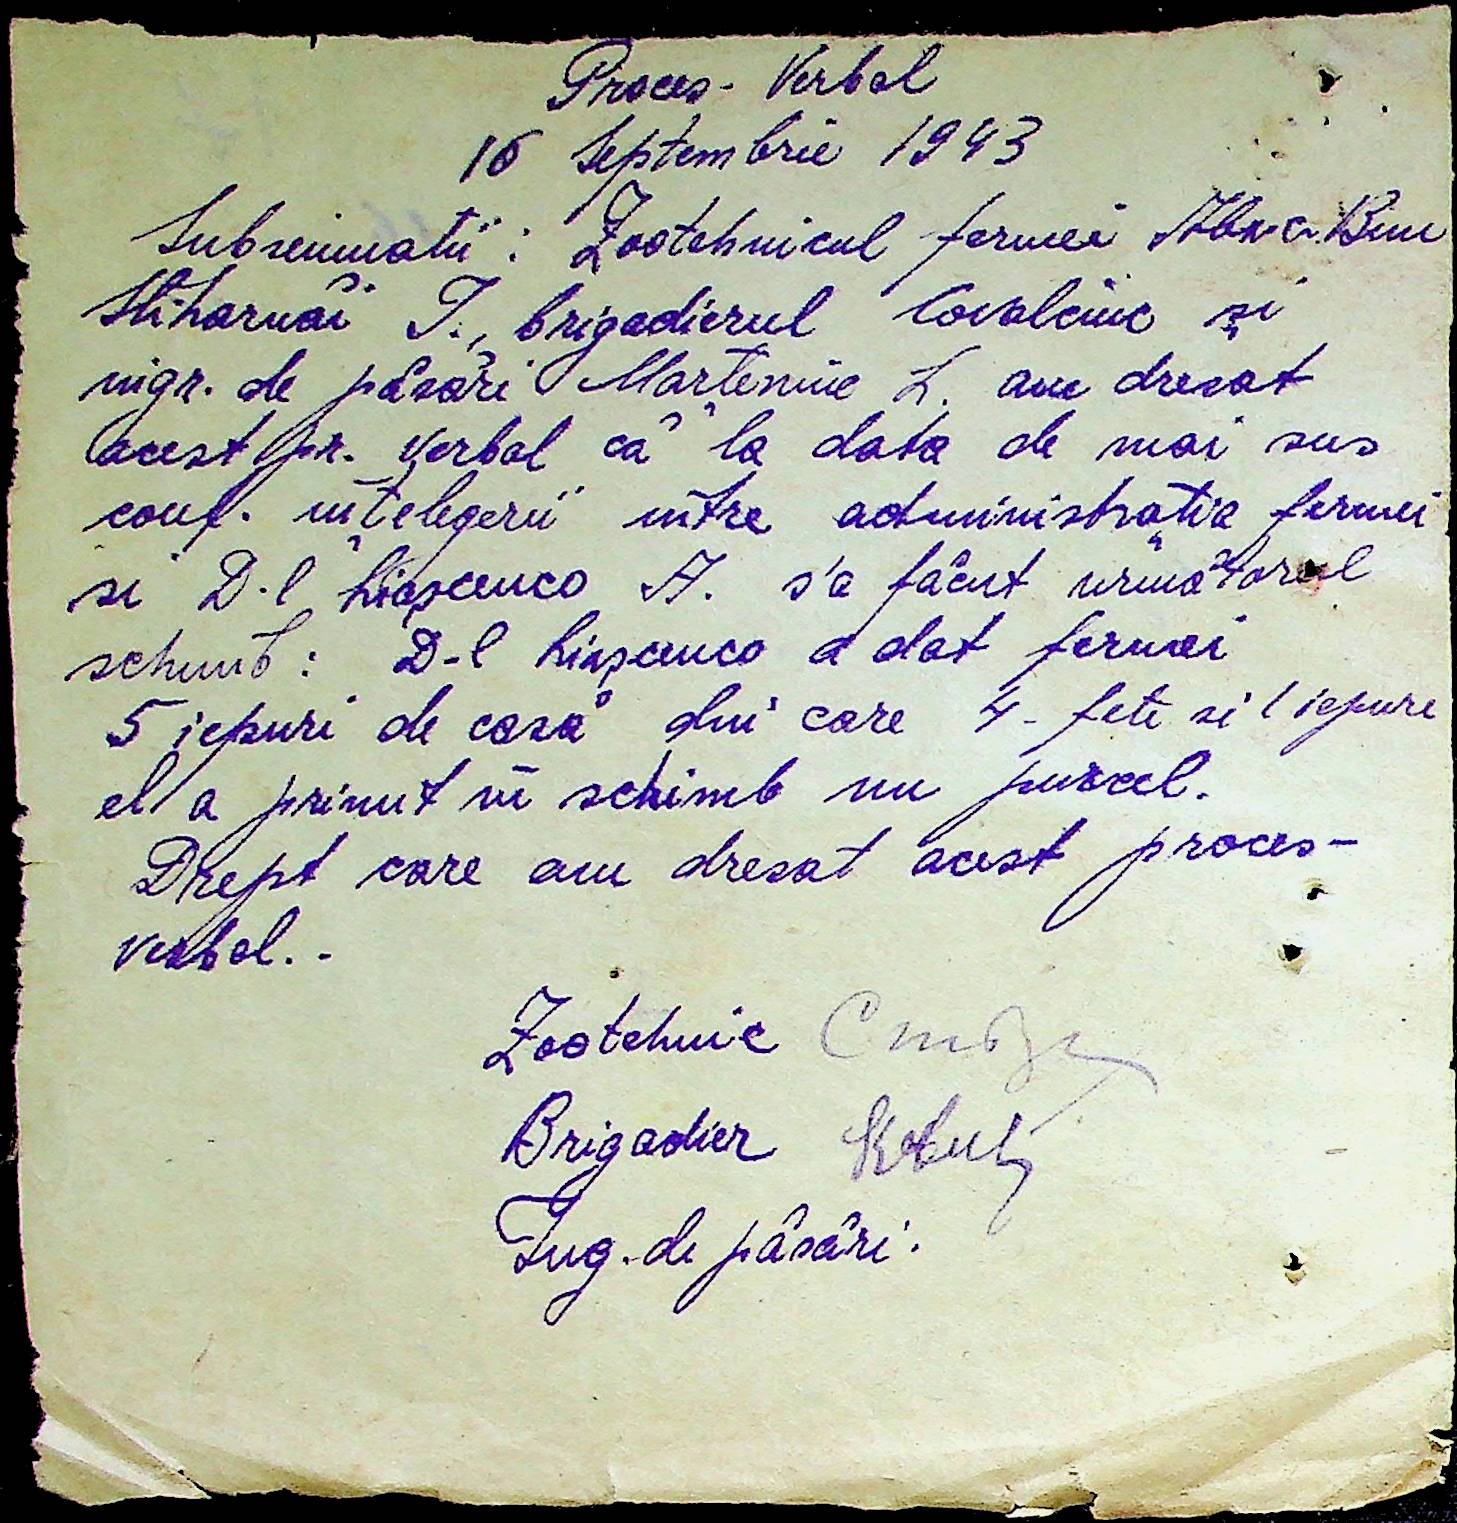 Proces-Verbal
16 Septembrie 1943
Subsemnații: Zootehnicul fermei
Stiharnâi T., brigadierul Covalciuc și
ingr. de păsări Marteniuc L. am dresat
acest pr. verbal că la data de mai sus
conf. înțelegerii între administrația fermei
si D-l Liașcenco A. s'a făcut următorul
schimb: D-l Liașcenco a dat fermei
5 iepuri de casă din care 4-fete si 1 iepure
el a primit în schimb un purcel.
Drept care am dresat acest proces-
verbal..
Zootehnic
Brigadier
Ing. de păsări.